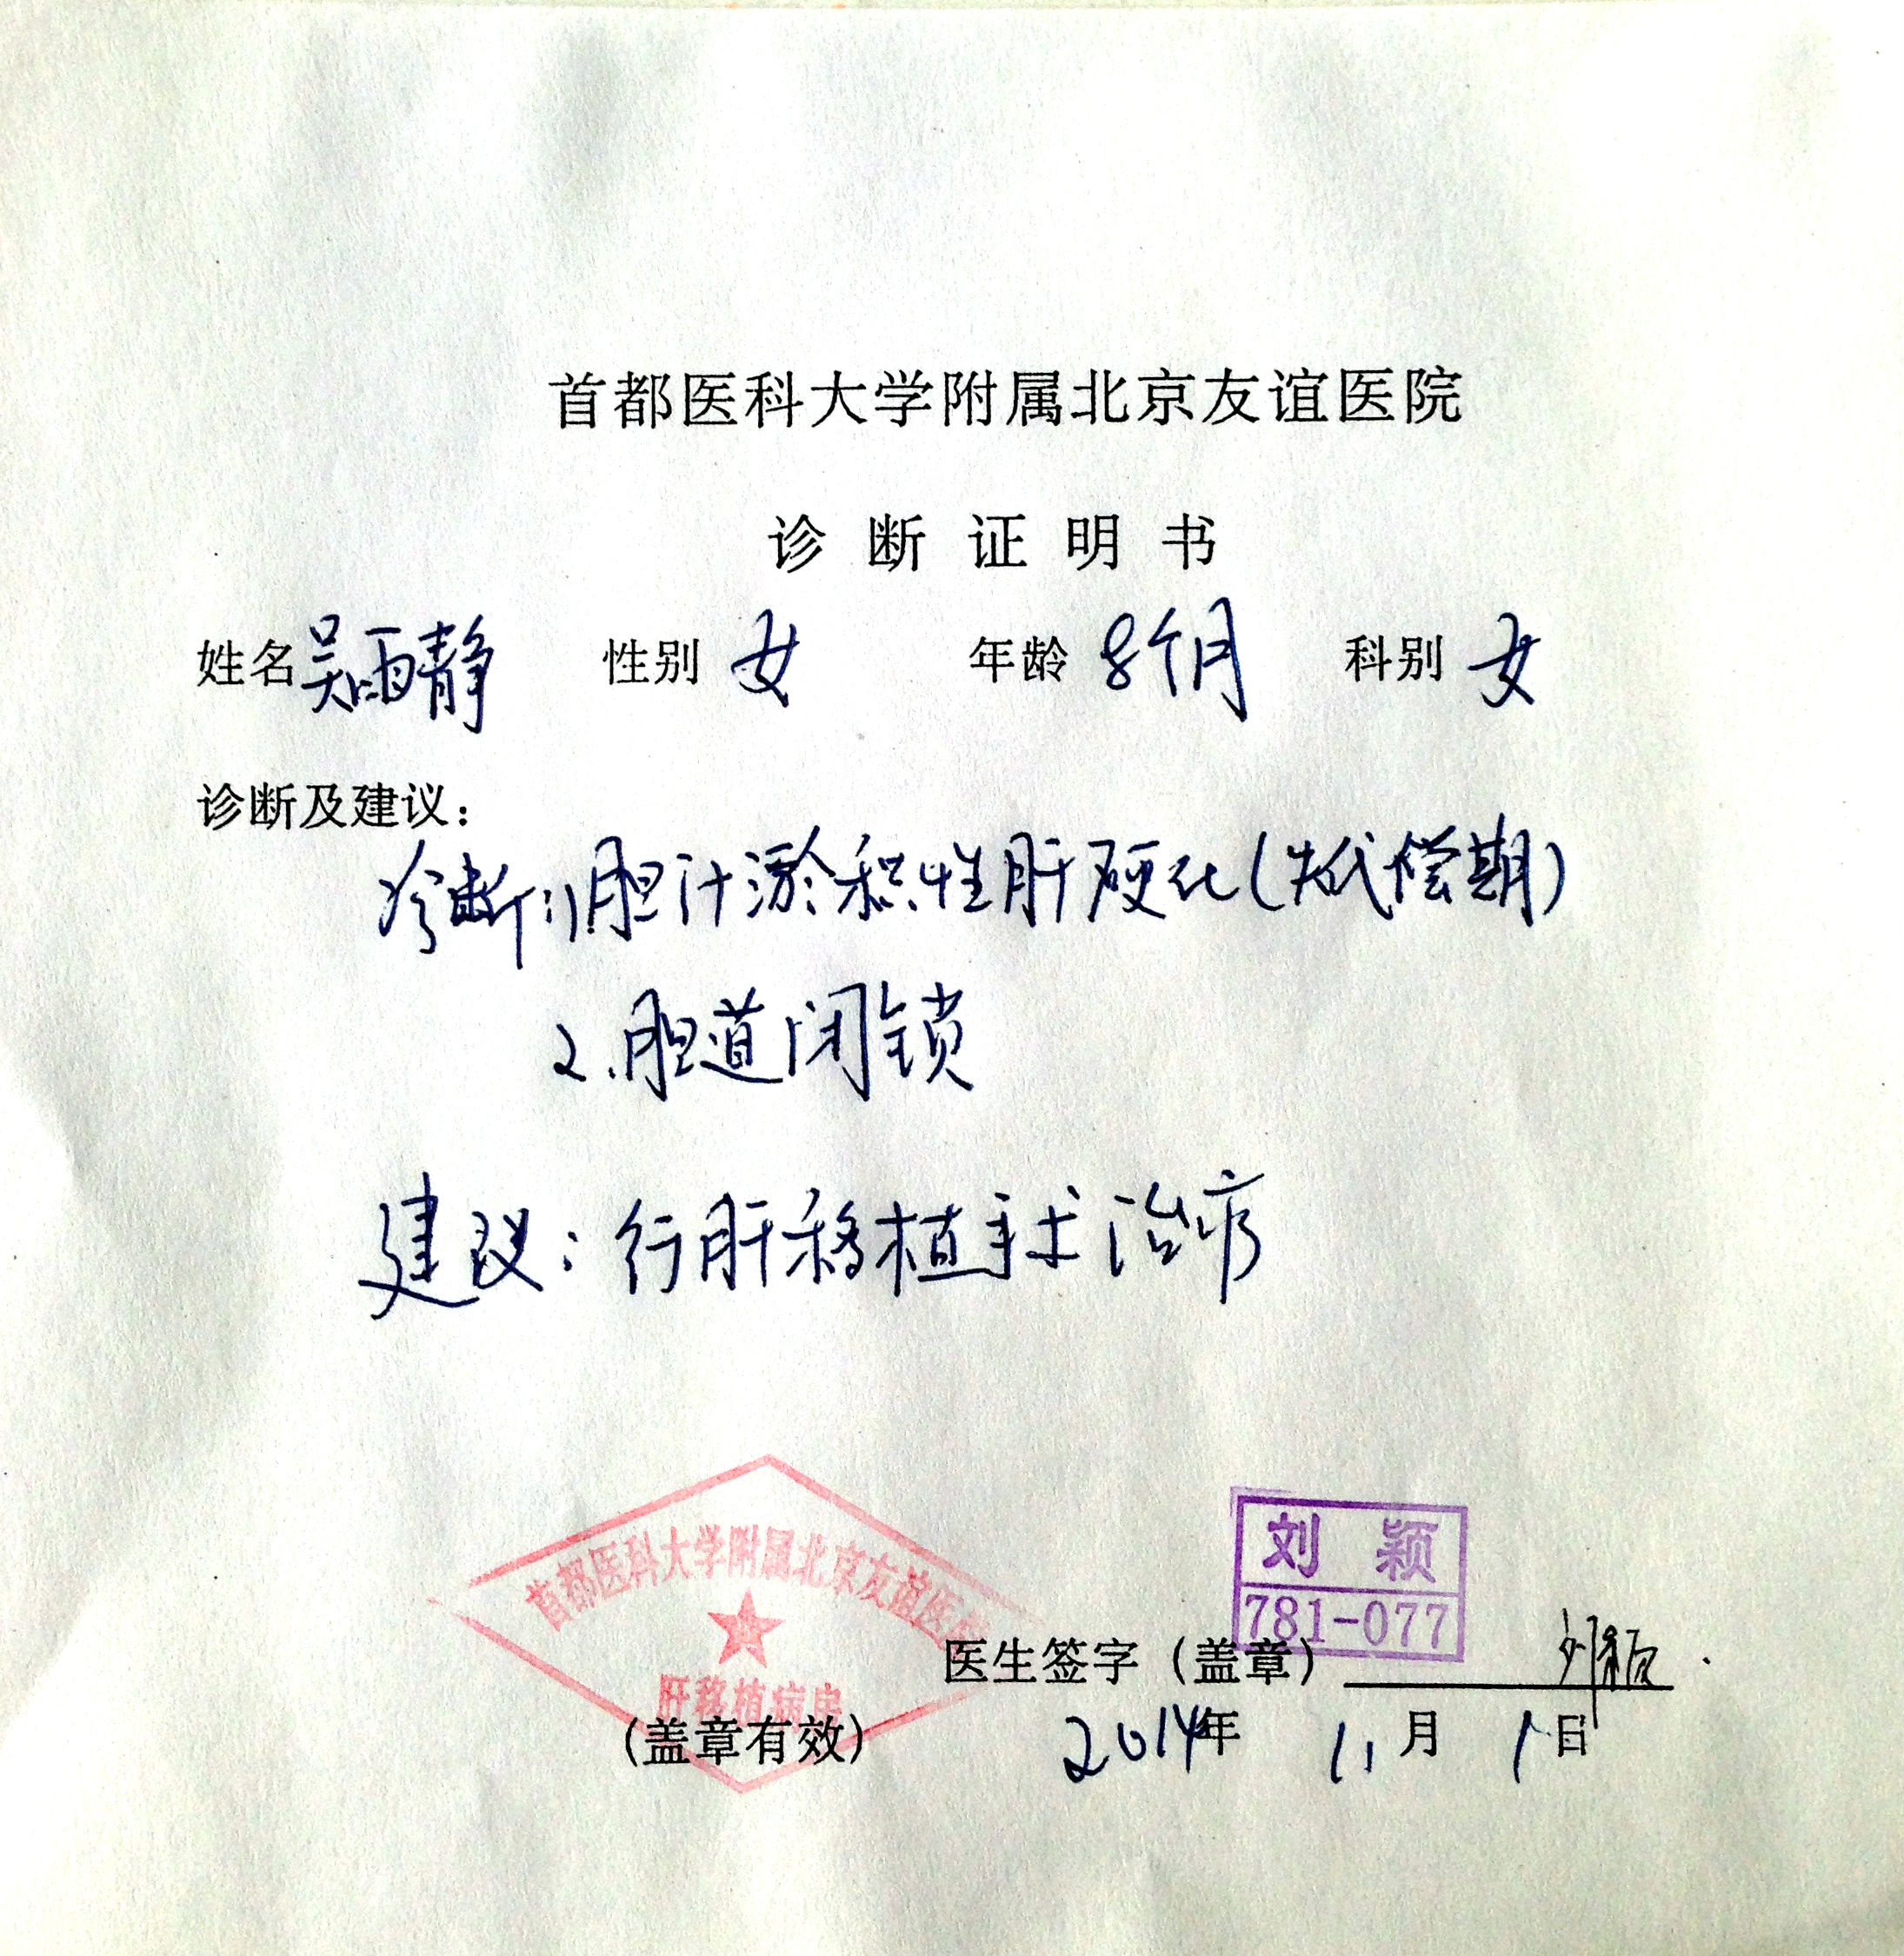 首都医科大学附属北京友谊医院
诊断证明书
姓名 吴雨静 性别 女 年龄 8个月 科别 女
诊断及建议：
诊断：1.胆汁淤积性肝硬化（失代偿期）
2.胆道闭锁
建议：行肝移植手术治疗
首都医科大学附属北京友谊医院
肝移植病房
刘颖
781-077
医生签字（盖章） 刘颖
（盖章有效） 2014年 11月 1日